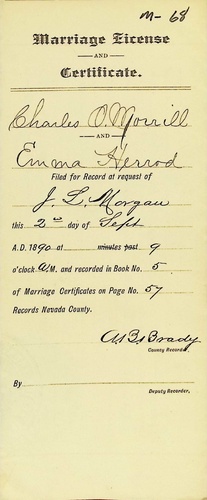 M-68
Marriage License
AND
Certificate.
Charles O. Morrill
AND
Emma Herrod
Filed for Record at request of
J. L. Morgan
this 2nd day of Sept
A.D. 1890 at minutes past 9
o'clock A.M. and recorded in Book No. 5
of Marriage Certificates on Page No. 57
Records Nevada County.
Brady
County Recorder.
By
Deputy Recorder,